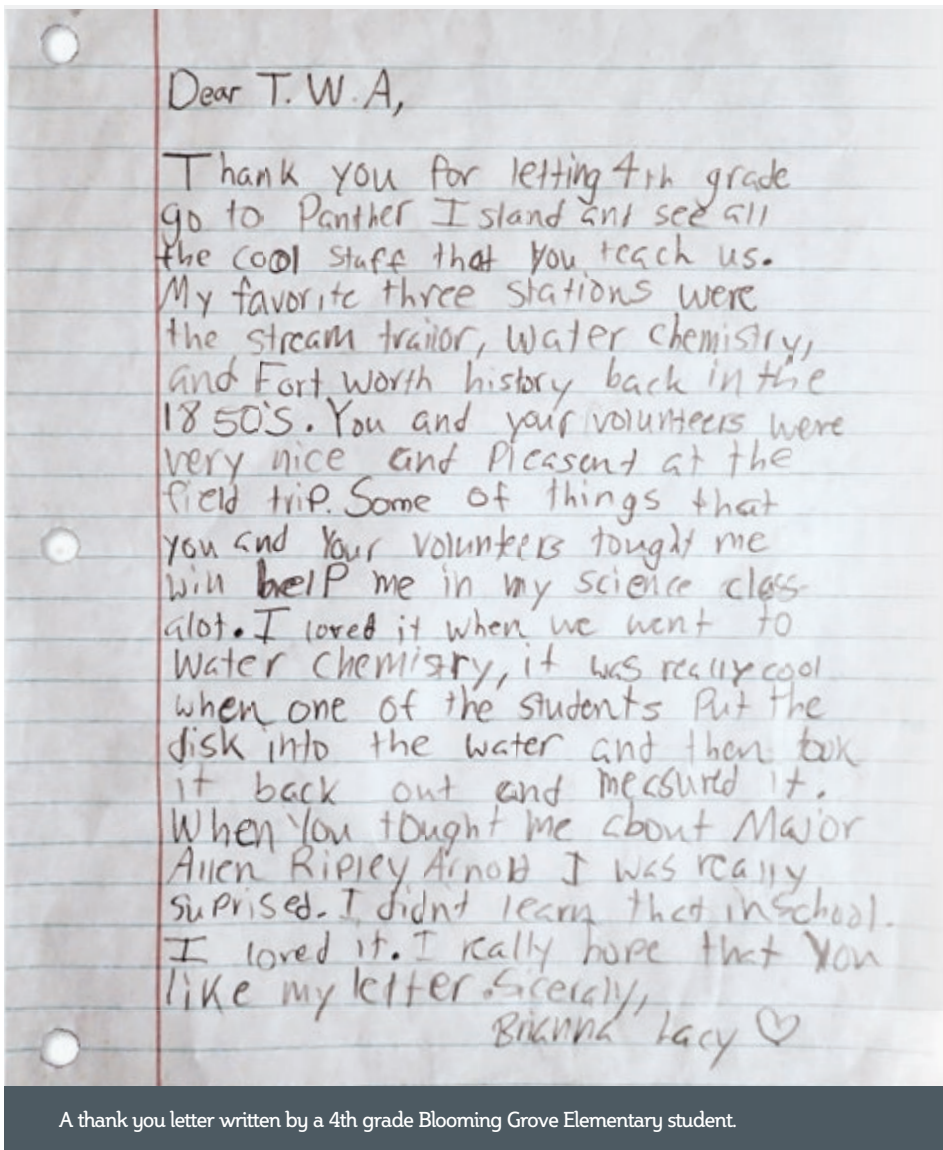 Dear T.W.A,
Thank you for letting 4th grade
go to Panther Island and see all
the cool stuff that you teach us.
My favorite three stations were
the stream trailor, water chemistry,
and Fort worth history back in the
1850's. You and your volunteers were
very nice and Pleasent at the
field trip. Some of things that
you and Your volunteers tought me
will help me in my science class
alot. I loved it when we went to
Water chemistry, it was really cool
when one of the students Put the
disk into the water and then took
it back out and measured it.
When You tought me about Major
Allen Ripley Arnold I was really
suprised. I didnt learn that in School.
I loved it. I really hope that You
like my letter. Sicerely,
Brianna Lacy ♡
A thank you letter written by a 4th grade Blooming Grove Elementary student.